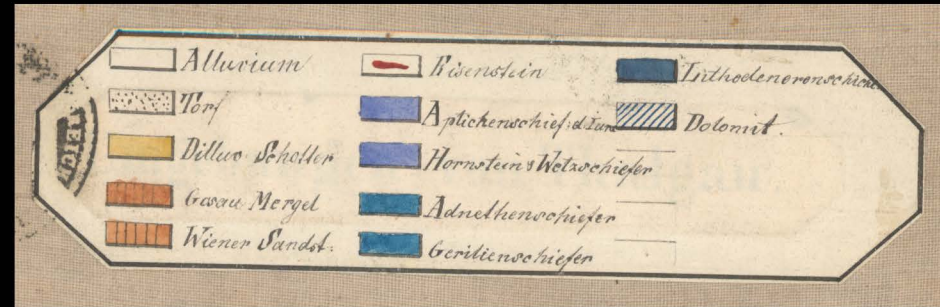 Alluvium
Torf
Diluv Schotter
Gosau Mergel
Wiener Sandst:
Eisenstein
Aptichenschief: d Jura
Hornstein & Wetzschiefer
Adnethenschiefer
Gervilienschiefer
Lithodendronschicht
Dolomit.